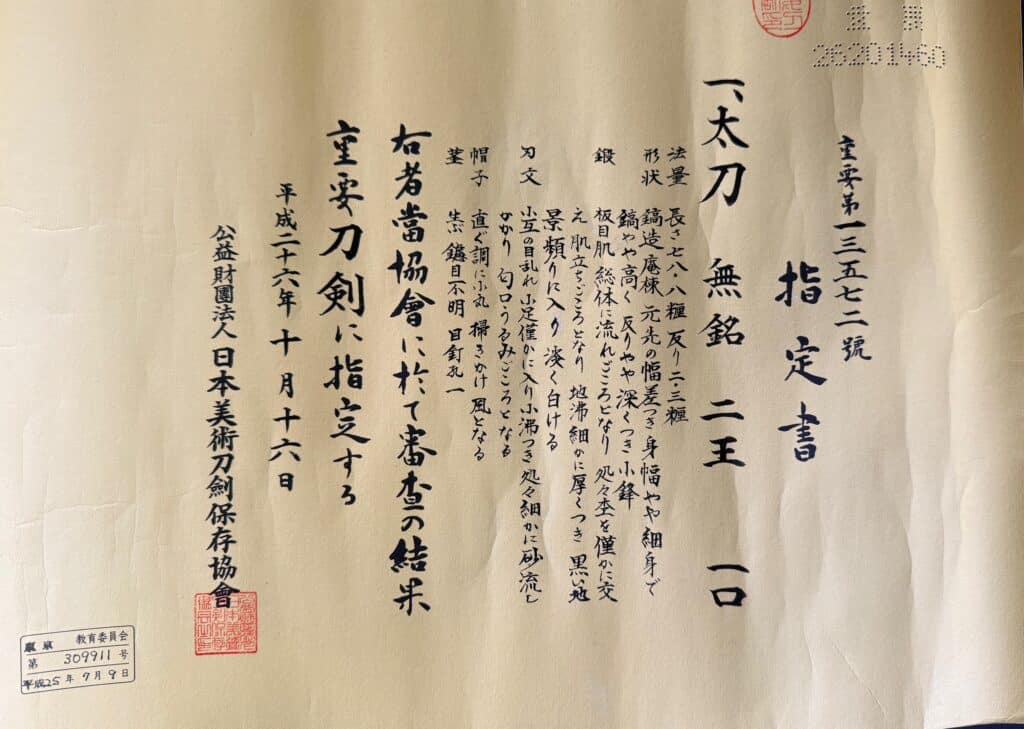 26201460
重要第一三五七二號
指定書
一、太刀 無銘 二王 一口
法量 長さ七八・八糎 反り二・三糎
形状 鎬造 庵棟 元先の幅差つき 身幅やや細身で
鎬やや高く 反りやや深くつき 小鋒
鍛 板目肌 総体に流れごころとなり 処々杢を僅かに交
え 肌立ちごころとなり 地沸細かに厚くつき 黒い地
景頻りに入り 淡く白ける
刃文 小互の目乱れ 小足僅かに入り 小沸つき 処々細かに砂流し
かかり 匂口うるみごころとなる
帽子 直ぐ調に小丸 掃きかけ風となる
茎 生ぶ 鑢目不明 目釘孔一
右者當協會に於て審査の結果
重要刀剣に指定する
平成二十六年十月十六日
公益財團法人日本美術刀劍保存協會
東京 教育委員会
第 309911 号
平成25年7月9日